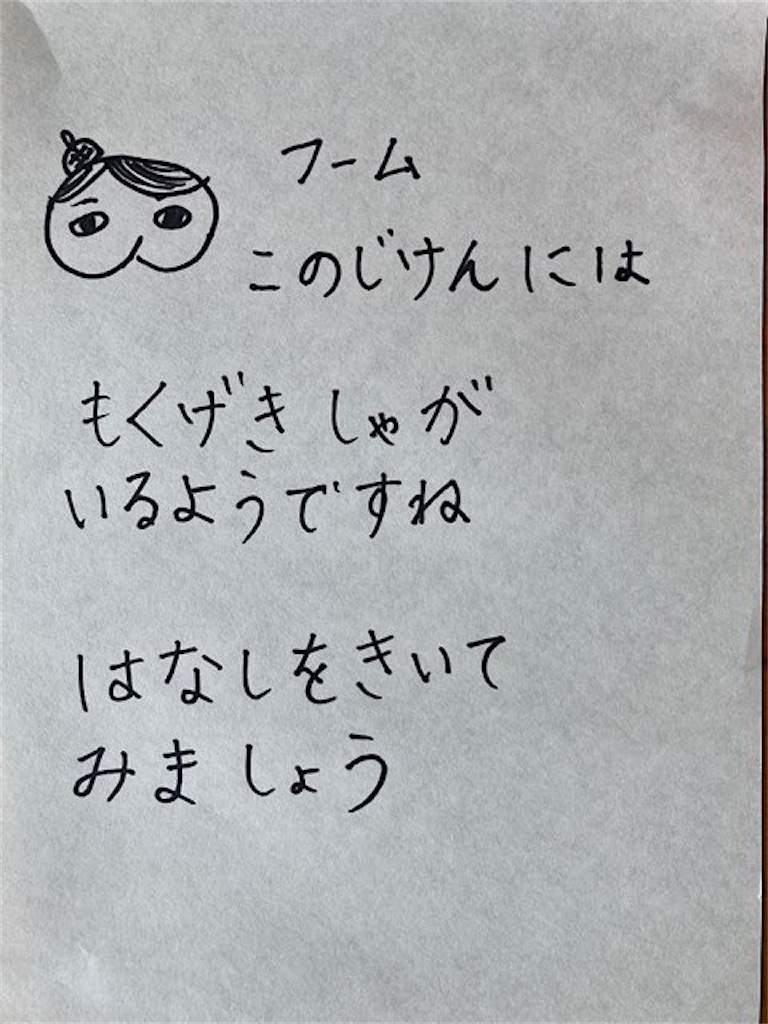 フーム
このじけんには
もくげきしゃが
いるようですね
はなしをきいて
みましょう